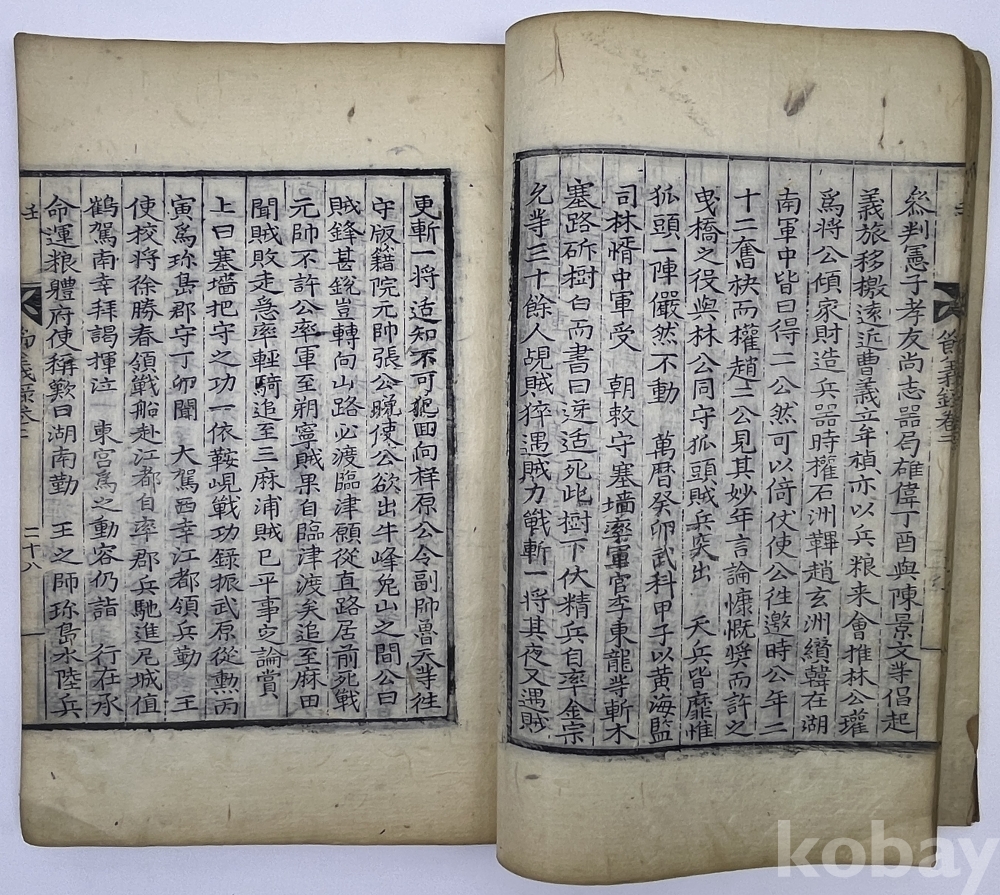 節義錄卷二
叅判憲子孝友尚志器局雄偉丁酉與陳景文等倡起
義旅移檄遠近曹義立年禎亦以兵粮来會推林公瓘
爲將公傾家財造兵器時權石洲韠趙玄洲纘韓在湖
南軍中皆曰得二公然可以倚仗使公徃邀時公年二
十二奮袂而權趙二公見其妙年言論慷慨奬而許之
曵橋之役與林公同守狐頭賊兵突出 天兵皆靡惟
狐頭一陣儼然不動 萬曆癸卯武科甲子以黄海監
司林㥠中軍受 朝敕守塞墻率軍官李東龍等斬木
塞路斫樹白而書曰逆适死此樹下伏精兵自率金宗
允等三十餘人覘賊猝遇賊力戰斬一將其夜又遇賊
更斬一将适知不可犯囬向样原公令副帥魯天等徃
守版籍院元帥張公晚使公欲出牛峰兎山之間公曰
賊鋒甚銳豈轉向山路必渡臨津願從直路居前死戰
元帥不許公率軍至朔寧賊果自臨津渡矣追至麻田
聞賊敗走急率輕騎追至三麻浦賊已平事定論賞
上曰塞墻把守之功一依鞍峴戰功錄振武原從勲而
寅爲珎島郡守丁卯聞 大駕西幸江都領兵勤 王
使校將徐勝春領戰船赴江都自率郡兵馳進尼城值
鶴駕南幸拜謁揮泣 東宮爲之動容仍詣 行在承
命運粮體府使稱歎曰湖南勤 王之師珎島水陸兵
節義錄卷二
二十八
kobay